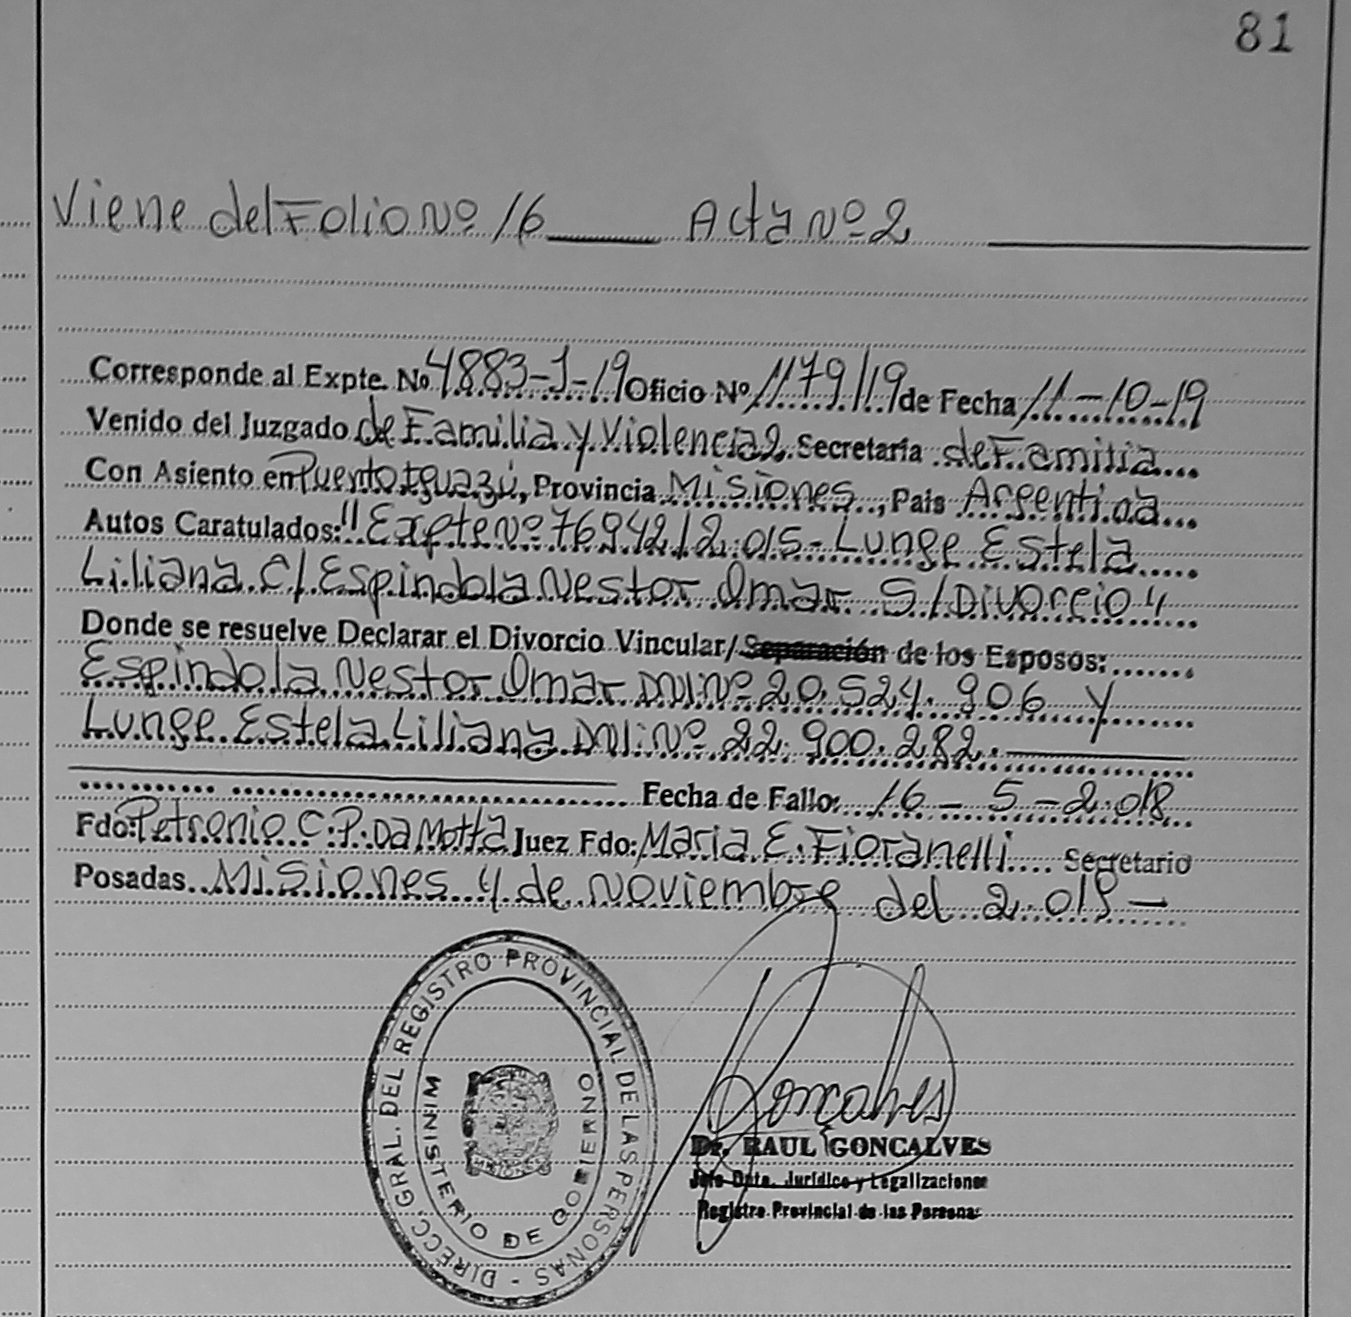 81
Viene del Folio Nº 16 Acta Nº 2
Corresponde al Expte. Nº 4883-J-19 Oficio Nº 1179/19 de Fecha 11-10-19
Venido del Juzgado de Familia y Violencia 2, Secretaría de Familia
Con Asiento en Puerto Iguazú, Provincia Misiones, Pais Argentina
Autos Caratulados: "Expte Nº 76942/2.015- Lunge Estela
Liliana C/ Espindola Nestor Omar S/Divorcio"
Donde se resuelve Declarar el Divorcio Vincular/Separación de los Esposos:
Espindola Nestor Omar DNI Nº 20.524.906 y
Lunge Estela Liliana DNI Nº 22.900.282.
Fecha de Fallo: 16-5-2.018
Fdo: Petronio C.P. Da Motta Juez Fdo: Maria E. Fioranelli Secretario
Posadas. Misiones 4 de Noviembre del 2.019-
DIRECC. GRAL. DEL REGISTRO PROVINCIAL DE LAS PERSONAS -
MINISTERIO DE GOBIERNO
Goncalves
Dr. RAUL GONCALVES
Jefe Dpto. Jurídico y Legalizaciones
Registro Provincial de las Personas